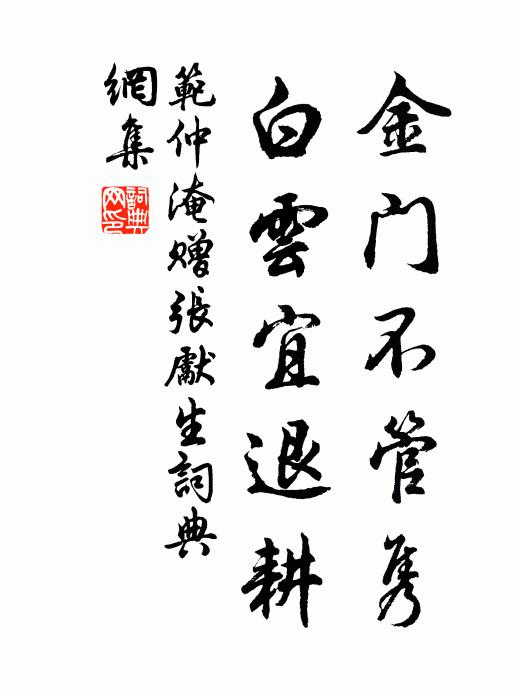 金门不管隽
白雲宜退耕
範仲淹赠張獻生詞典
網集
詞典
网印